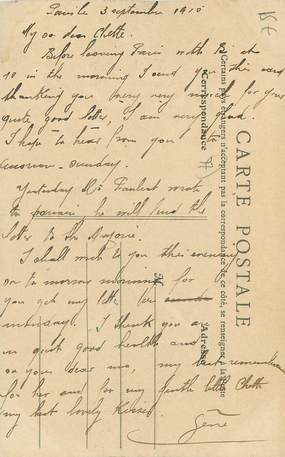 Paris le 3 septembre 1910
15€
My so dear Chette.
Before leaving Paris with Bi at
10 in the morning I send you this card
thanking you very very much for your
quite good letter, I am very glad.
I hope to hear from you
sunday.
Yesterday Mr wrote
to he will send the
letter to the
I shall write to you this evening
or to morrow morning for
you get my letter
I thank you are
in quite good health and
so your dear ma, my best remembrance
for her and for my little Chette
my best lovely Kisses
Gene
CARTE POSTALE
Certains pays étrangers n'acceptant pas la correspondance de ce côté, se renseigner à la Poste
Correspondance
Adresse